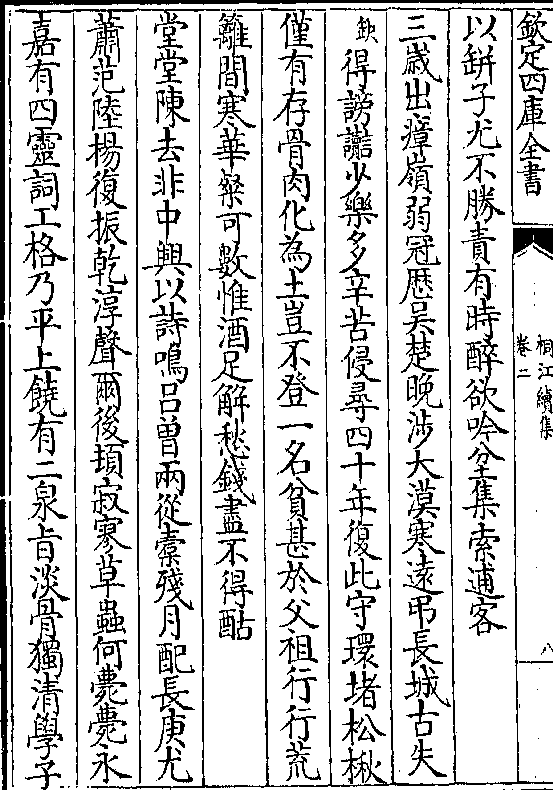 欽定四庫全書
桐江續集
卷二
八
以缾子尤不勝責有時醉欲吟坌集索逋客
三嵗出瘴嶺弱冠歴吳楚晚渉大漠寒遠弔長城古失
欽得謗讟少樂多辛苦侵尋四十年復此守環堵松楸
僅有存骨肉化為土豈不登一名貧甚於父祖行行荒
籬間寒華粲可數惟酒足解愁錢盡不得酤
堂堂陳去非中興以詩鳴吕曽兩從槖殘月配長庚尤
蕭范陸楊復振乾淳聲爾後頃寂寥草蟲何薨薨永
嘉有四靈詞工格乃平上饒有二泉旨淡骨獨清學子